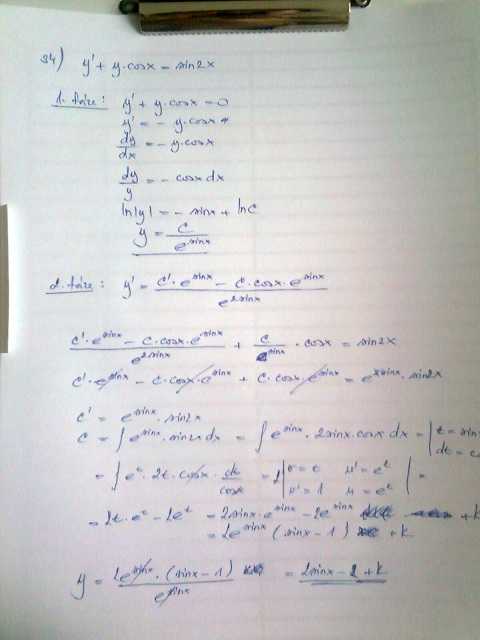 34) y' + y·cosx = sin2x
1. fáze: y' + y·cosx = 0
y' = - y·cosx
dy/dx = - y·cosx
dy/y = - cosx dx
ln|y| = - sinx + lnC
y = C/e^sinx
2. fáze: y' = (C'·e^sinx - C·cosx·e^sinx)/e^2sinx
(C'·e^sinx - C·cosx·e^sinx)/e^2sinx + C/e^sinx · cosx = sin2x
C'·e^sinx - C·cosx·e^sinx + C·cosx·e^sinx = e^2sinx·sin2x
C' = e^sinx·sin2x
C = ∫e^sinx·sin2x dx = ∫e^sinx·2sinx·cosx dx = | t = sin
dt = co
= ∫e^t·2t·cosx·dt/cosx = 2| v = t u' = e^t
v' = 1 u = e^t | =
= 2t·e^t - 2e^t = 2sinx·e^sinx - 2e^sinx + k
= 2e^sinx(sinx - 1) + k
y = 2e^sinx·(sinx - 1)/e^sinx = 2sinx - 2 + k